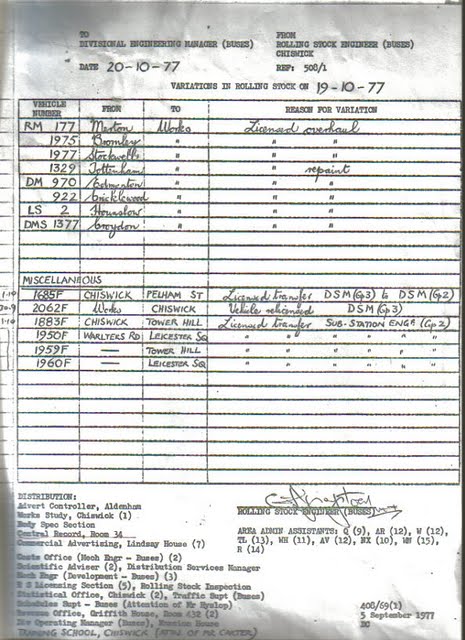 TO
DIVISIONAL ENGINEERING MANAGER (BUSES)
FROM
ROLLING STOCK ENGINEER (BUSES)
CHISWICK
DATE 20-10-77
REF: 508/1
VARIATIONS IN ROLLING STOCK ON 19-10-77
VEHICLE NUMBER FROM TO REASON FOR VARIATION
RM 177 Merton Works Licensed overhaul
1975 Bromley " " "
1977 Stockwell " " "
1329 Tottenham " " repaint
DM 970 Edmonton " " "
922 Cricklewood " " "
LS 2 Hounslow " " "
DMS 1377 Croydon " " "
MISCELLANEOUS
1685F CHISWICK PELHAM ST Licensed transfer DSM (Gp3) to DSM (Gp2)
2062F Works CHISWICK Vehicle relicensed DSM (Gp3)
1883F CHISWICK TOWER HILL Licensed transfer SUB-STATION ENGR (Gp2)
1950F WARLTERS RD LEICESTER SQ " " " " " "
1959F — TOWER HILL " " " " " "
1960F — LEICESTER SQ " " " " " "
DISTRIBUTION:
Advert Controller, Aldenham
Works Study, Chiswick (1)
Body Spec Section
Central Record, Room 34
Commercial Advertising, Lindsay House (7)
Costs Office (Mech Engr - Buses) (2)
Scientific Adviser (2), Distribution Services Manager
Mech Engr (Development - Buses) (3)
R S Licensing Section (5), Rolling Stock Inspection
Statistical Office, Chiswick (2), Traffic Supt (Buses)
Schedules Supt - Buses (Attention of Mr Hyslop)
Revenue Office, Griffith House, Room 432 (2)
Div Operating Manager (Buses), Mansion House
TRAINING SCHOOL, CHISWICK (ATTN. OF MR CARTER)
ROLLING STOCK ENGINEER (BUSES)
AREA ADMIN ASSISTANTS: Q (9), AR (12), W (12),
TL (13), WH (11), AV (12), NX (10), WN (15),
R (14)
408/69(1)
5 September 1977